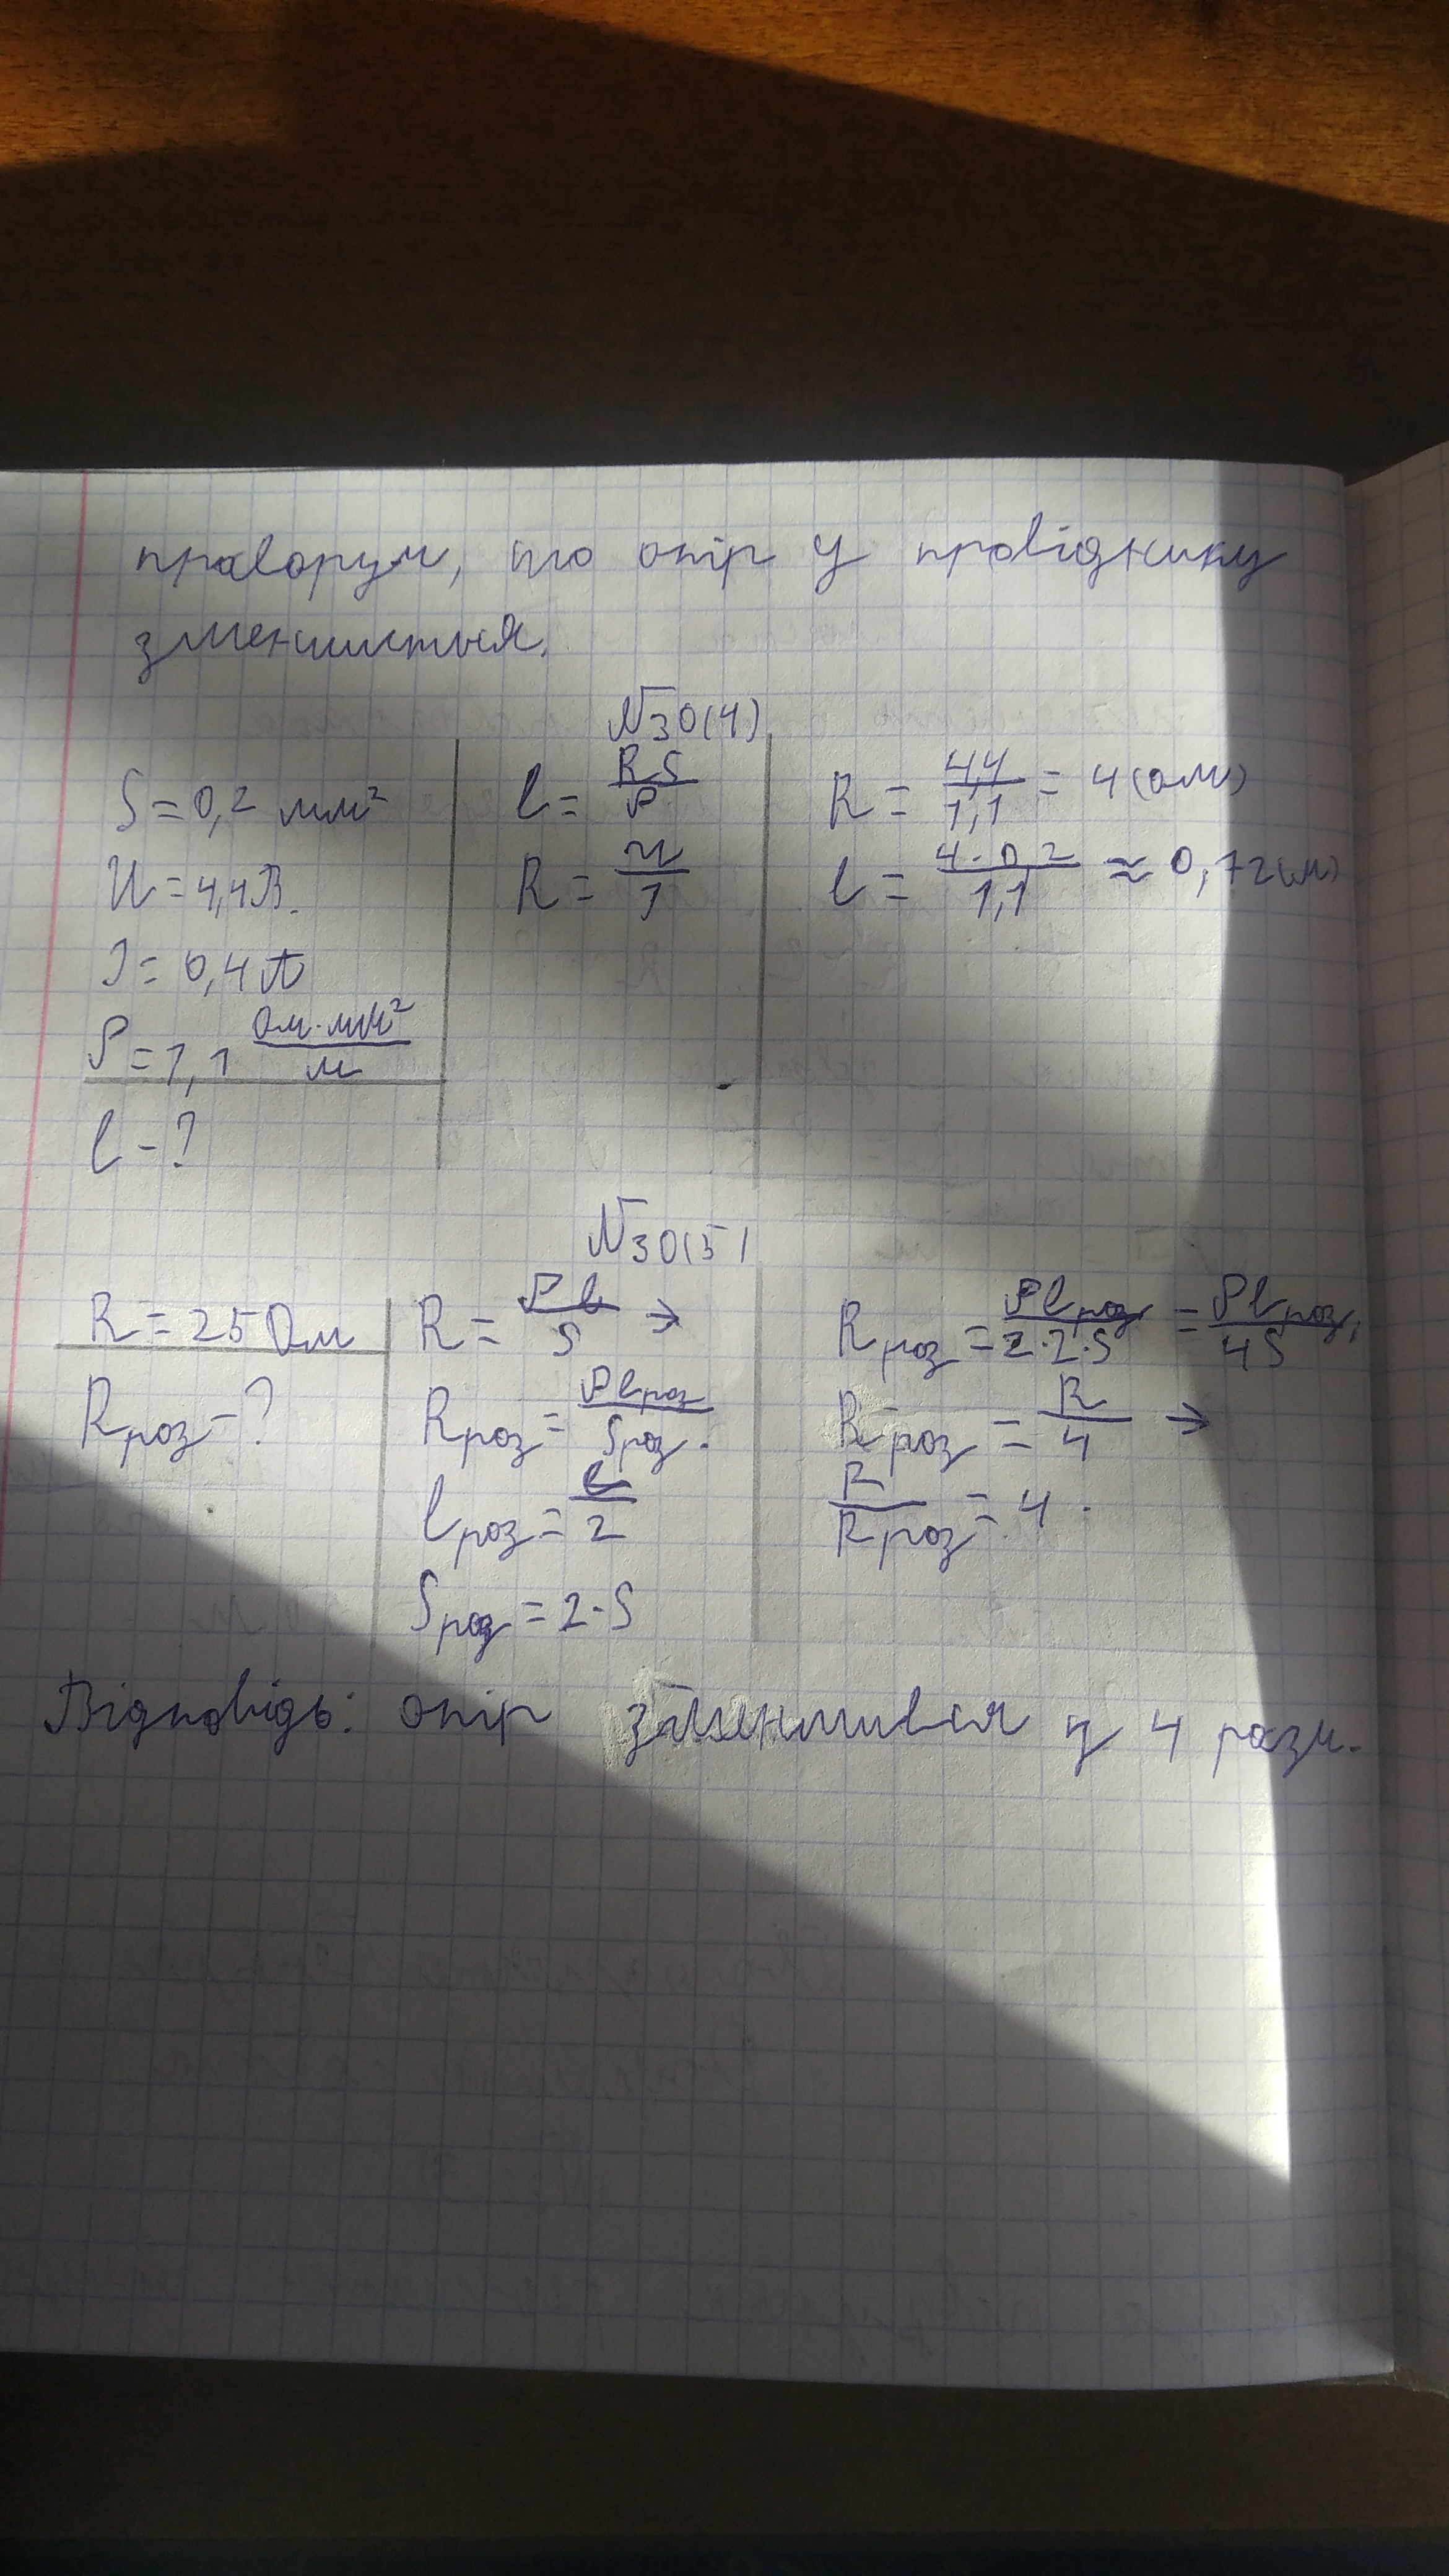 праворуч, то опір у провіднику
зменшиться.
№30(4)
S = 0,2 мм²
U = 4,4 В.
I = 0,4 А
ρ = 1,1 Ом·мм²/м
l - ?
l = RS/ρ
R = U/I
R = 4,4/1,1 = 4 (Ом)
l = 4·0,2/1,1 ≈ 0,72 (м)
№30(5)
R = 25 Ом
Rроз - ?
R = ρl/S →
Rроз = ρlроз/Sроз.
lроз = l/2
Sроз = 2·S
Rроз = ρlроз/2·2·S = ρlроз/4S,
Rроз = R/4 →
R/Rроз = 4.
Відповідь: опір зменшився у 4 рази.